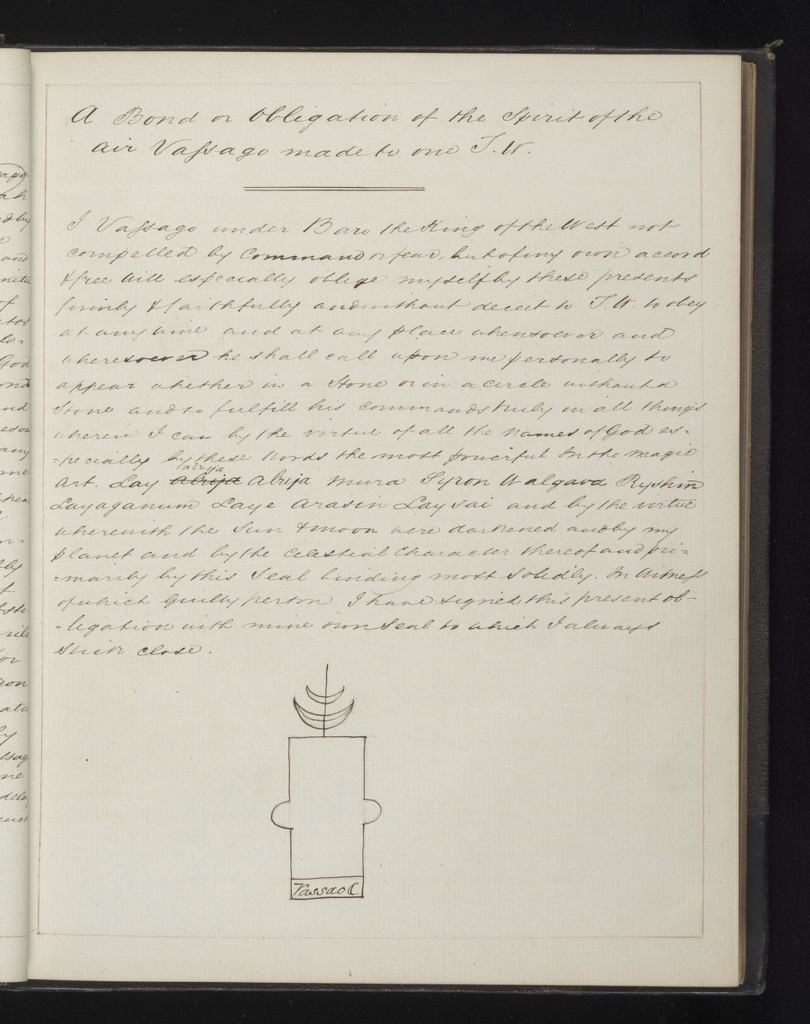 A Bond or Obligation of the Spirit of the
air Vassago made to one T. W.
I Vassago under Baro the King of the West not
compelled by Command or fear, but of my own accord
& free Will especially oblige myself by these presents
firmly & faithfully and without deceit to T. W. to obey
at any time and at any place whensoever and
wheresoever he shall call upon me personally to
appear whether in a Stone or in a circle without a
Stone and to fulfill his commands truly in all things
wherein I can by the virtue of all the names of God es-
-pecially by these Words the most powerful in the magic
airija
Art. Lay Abrija Abrija mura Syron Walgava Ryshin
Layaganum Laye arasin Laysai and by the virtue
wherewith the Sun & moon were darkened and by my
planet and by the Celestial Character thereof and pri-
=marily by this Seal binding most Solidly. In Witness
of which guilty person I have signed this present ob-
-ligation with mine own Seal to which I always
Stick close.
Vassao